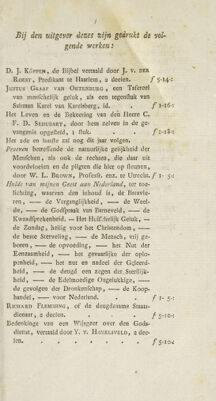 Bij den uitgever dezes zijn gedrukt de vol-
gende werken:
D. J. KÖPPEN, de Bijbel vertaald door J. v. DER
ROEST, Predikant te Haarlem, 2 deelen. f 5-14:
JUSTUS GRAAF VAN ORTENBURG, een Tafereel
van menschelijk geluk, als een tegenstuk van
Salzman Karel van Karelsberg, id. f 1-16:
Het Leven en de Rekening van den Heere C.
F. D. SCHUBART, door hem zelven in de ge-
vangenis opgesteld, 1 stuk. f 1-18:
Het 2de en laatste zal nog dit jaar volgen.
Proeven betreffende de natuurlijke gelijkheid der
Menschen, als ook de rechten, die daar uit
voordvloeien en de pligten die hier op stouen,
door W. L. BROWN, Profess. enz. te Utrecht. f 1- 5:
Hulde van mijnen Geest aan Nederland, ter toe-
lichting, waarvan den inhoud is, de Staatvlie-
ren, — de Vergankelijkheid, — de Weel-
de, — de Godspraak van Barneveld, — de
Kwaadsprekenheid. — Het Huisselijk Geluk,
— de Zondag, heilig voor het Christendom, —
de beste Sterveling, — de Mensch, vrij ge-
boren, — de opvoeding, — het Nut der
Eenzaamheid, — het gevaarlijke der oplo-
penheid, — het nut en nadeel der Geleerd-
heid, — de deugd een zegen der Sterflijk-
heid, — de Edelmoedige Ongelukkige, —
de gevolgen der Dronkenschap, — de Koop-
handel, — voor Nederland. f 1- 5:
RICHARD FLEMMING, of de deugdzame Staats-
dienaar, 2 deelen. f 5-10:
Bedenkinge van een Wijsgeer over den Gods-
dienst, vertaald door Y. v. HAMELSVELD, 2 dee-
len. f 5-10: